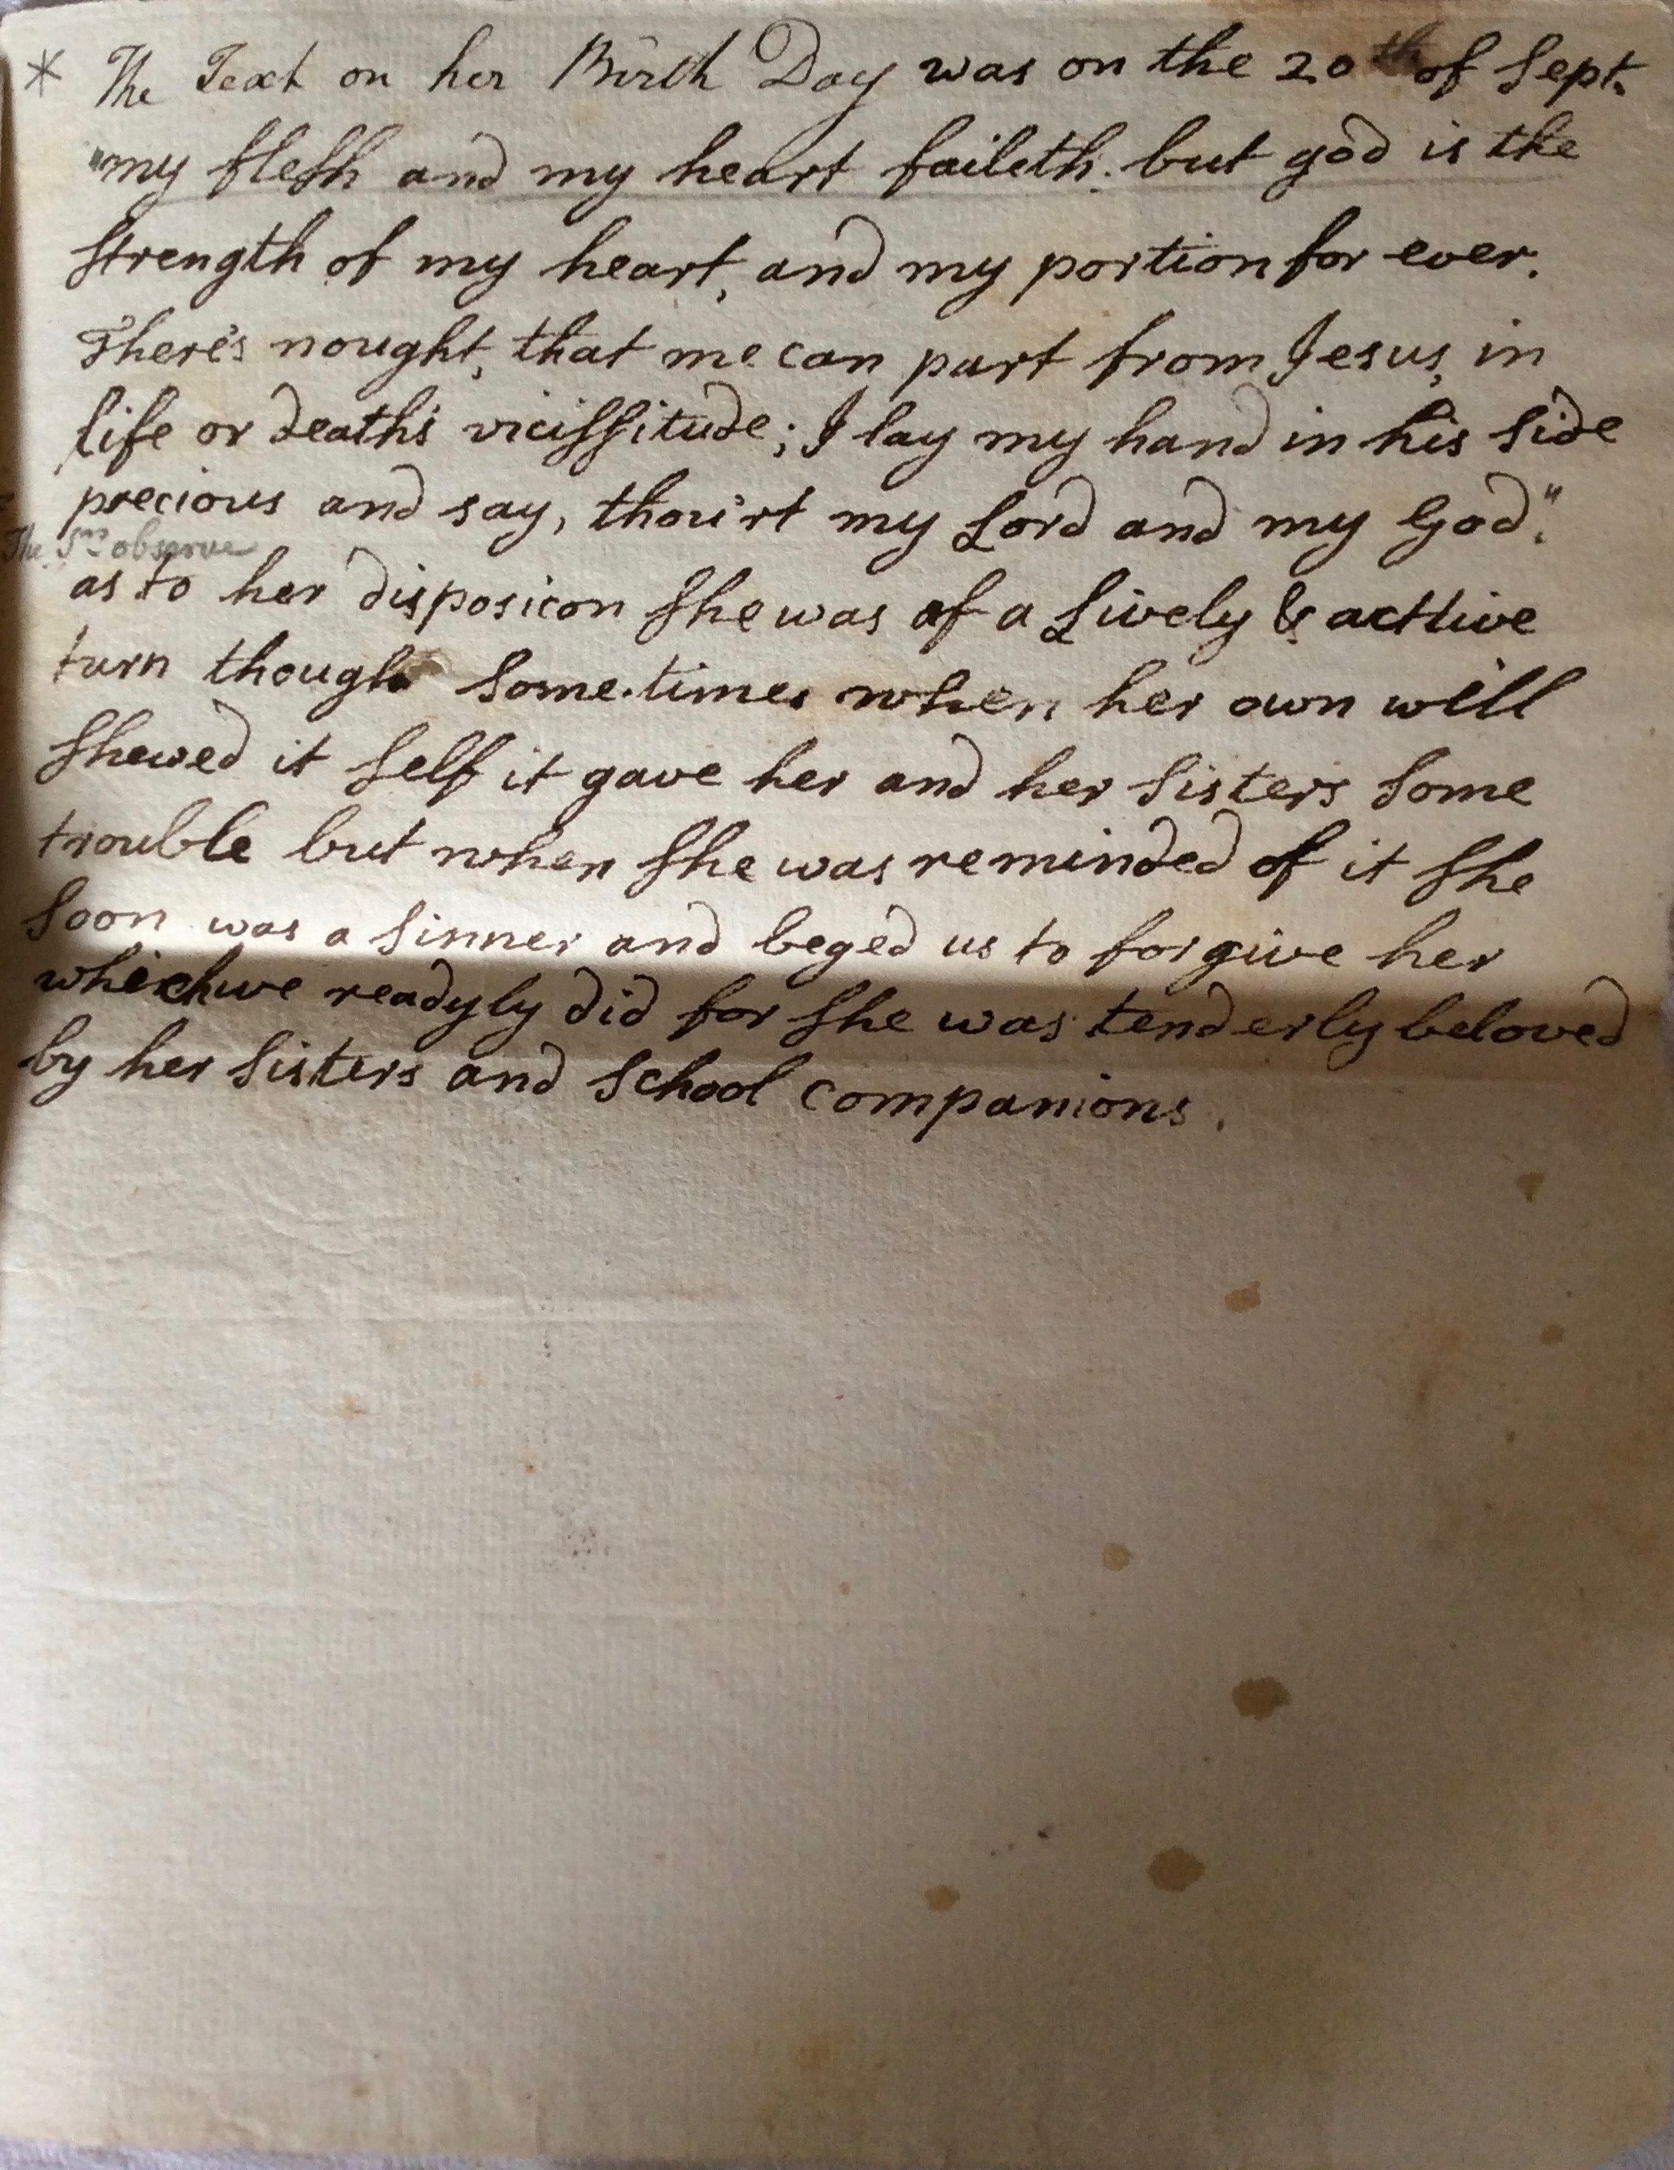 * The Text on her Birth Day was on the 20th of Sept.
"my flesh and my heart faileth: but god is the
strength of my heart, and my portion for ever.
There's nought, that me can part from Jesus, in
life or death's vicissitude; I lay my hand in his side
precious and say, thou'rt my Lord and my God".
The Srs observe
as to her disposicon she was of a Lively & acttive
turn though some times when her own will
shewed it self it gave her and her sisters some
trouble but when she was reminded of it she
soon was a sinner and beged us to forgive her
which we readyly did for she was tenderly beloved
by her sisters and school companions.